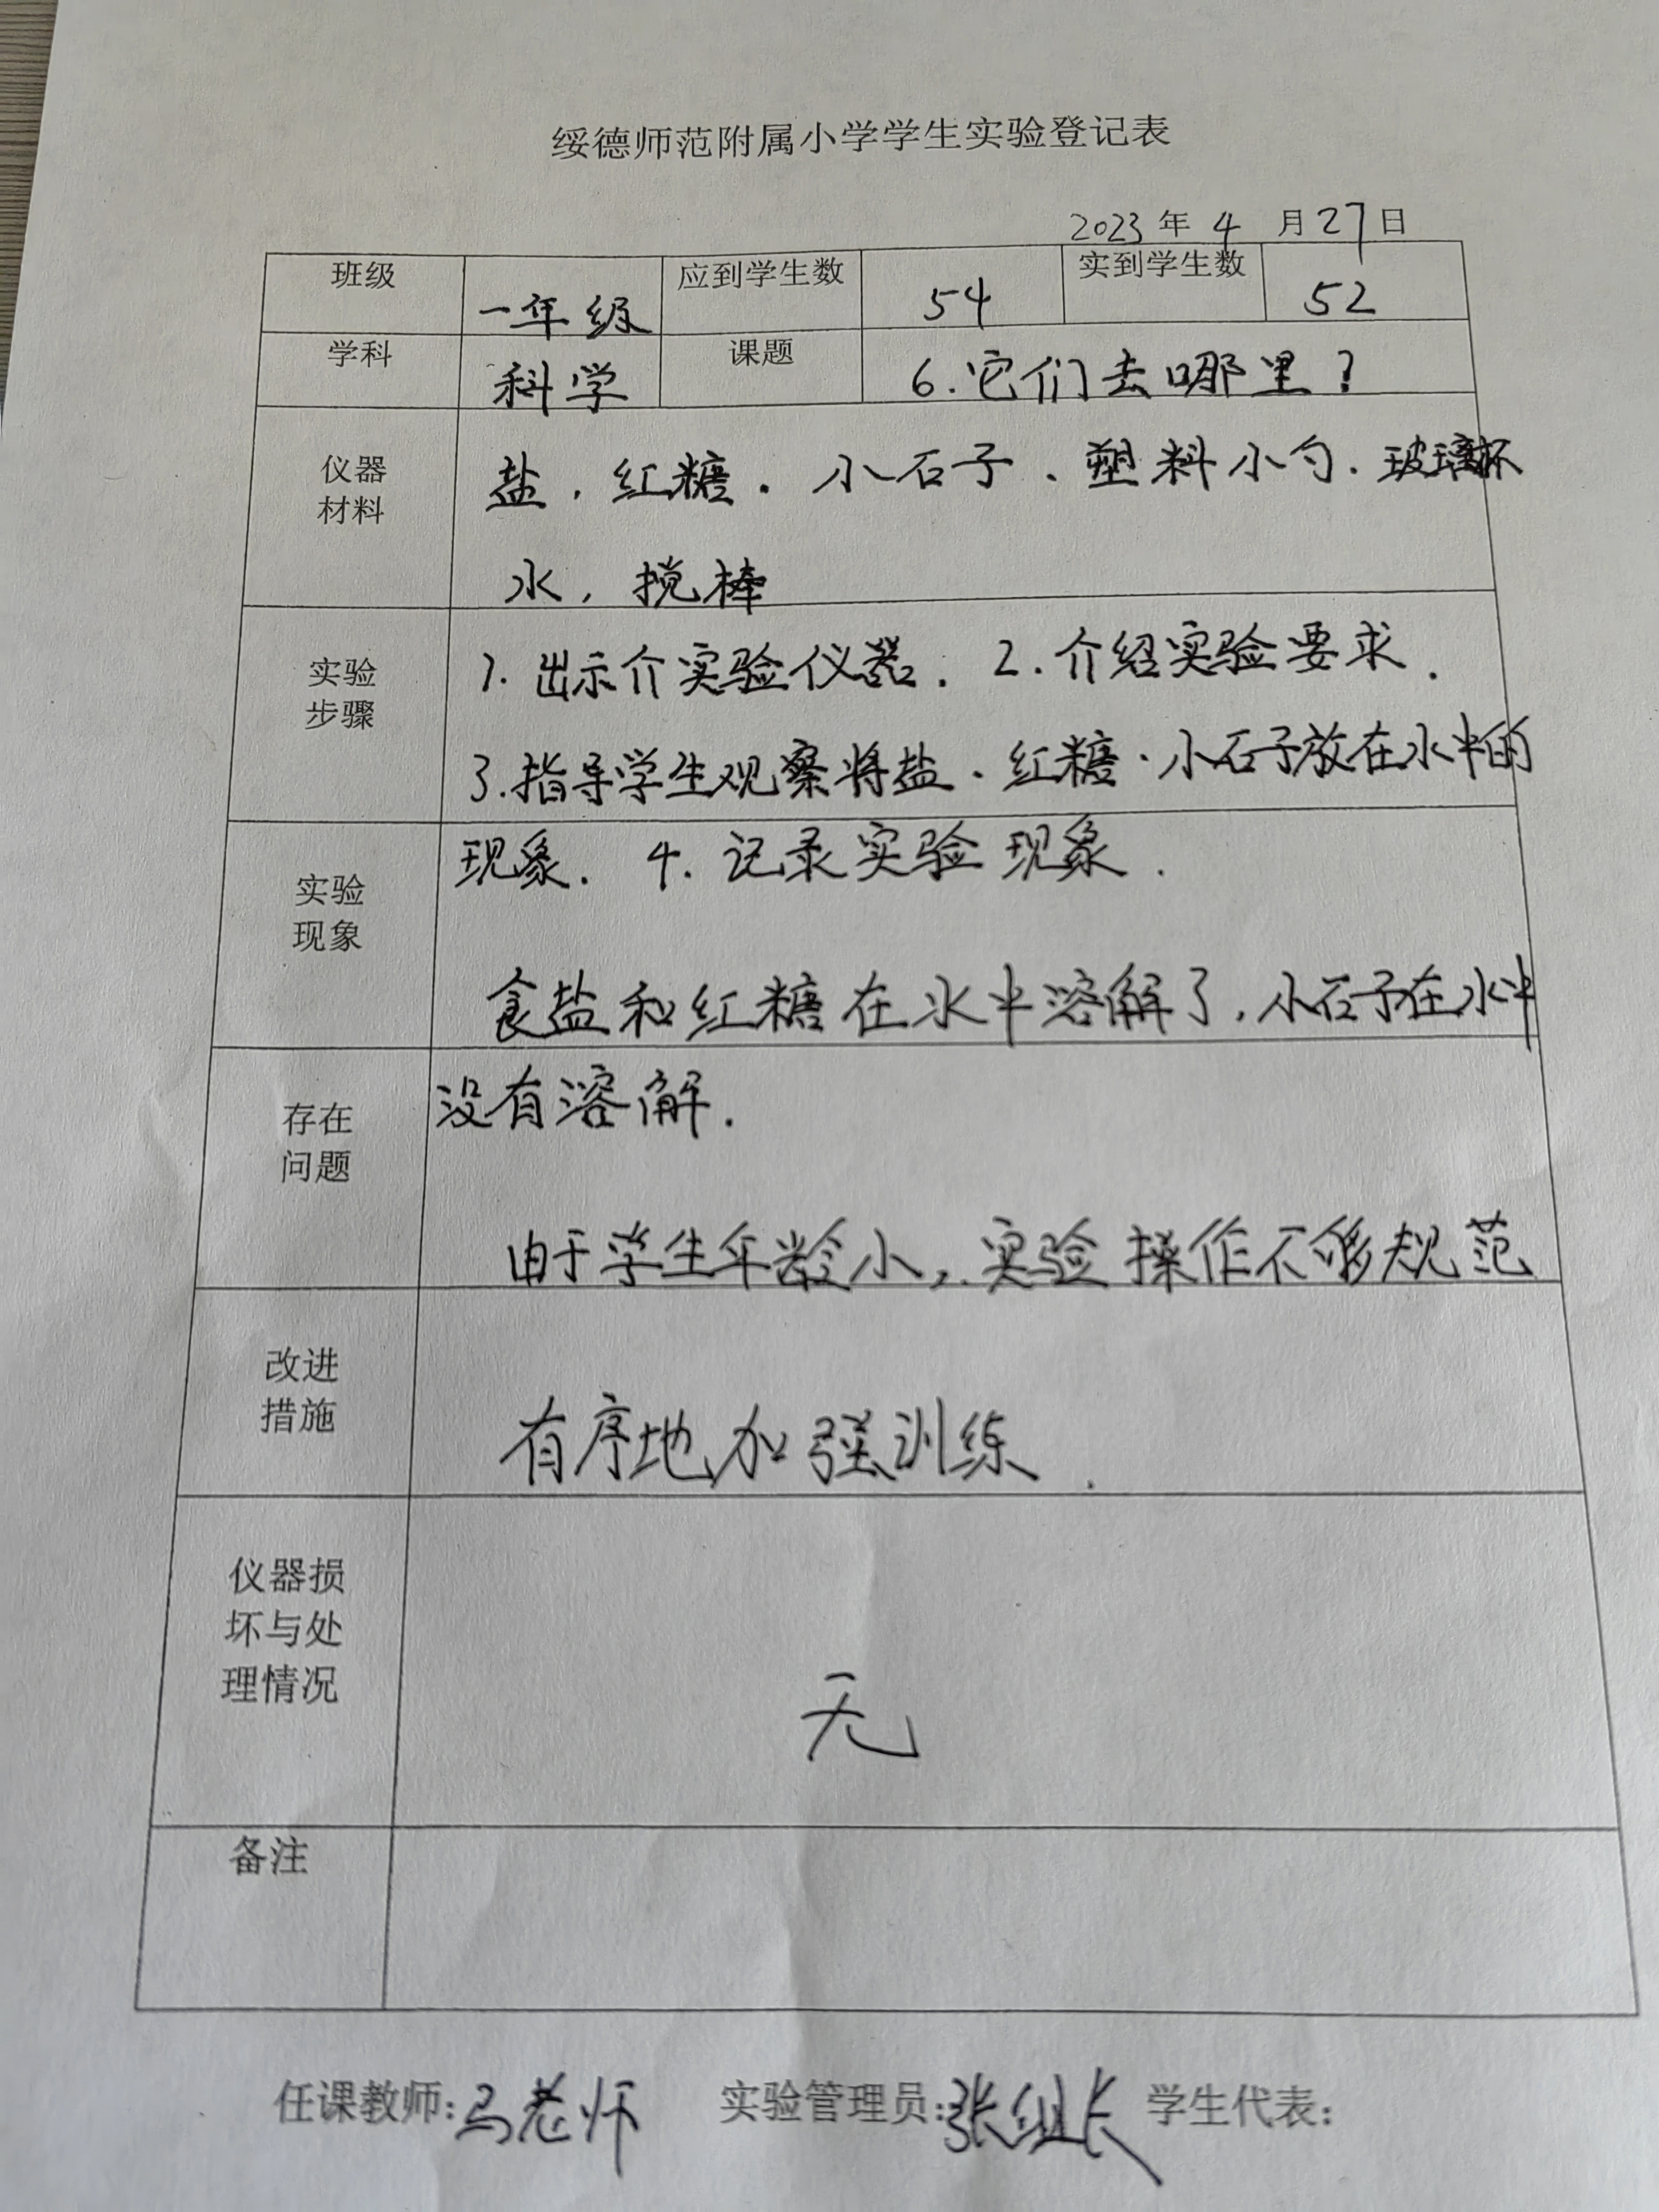 绥德师范附属小学学生实验登记表
2023年4月27日
班级 一年级 应到学生数 54 实到学生数 52
学科 科学 课题 6.它们去哪里?
仪器
材料
盐,红糖.小石子、塑料小勺.玻璃杯
水,搅棒
实验
步骤
1.出示介实验仪器.2.介绍实验要求.
3.指导学生观察将盐、红糖.小石子放在水中的
现象.4.记录实验现象.
实验
现象
食盐和红糖在水中溶解了,小石子在水中
没有溶解.
存在
问题
由于学生年龄小,实验操作不够规范
改进
措施
有序地加强训练.
仪器损
坏与处
理情况
无
备注
任课教师:马老师 实验管理员:张组长 学生代表: